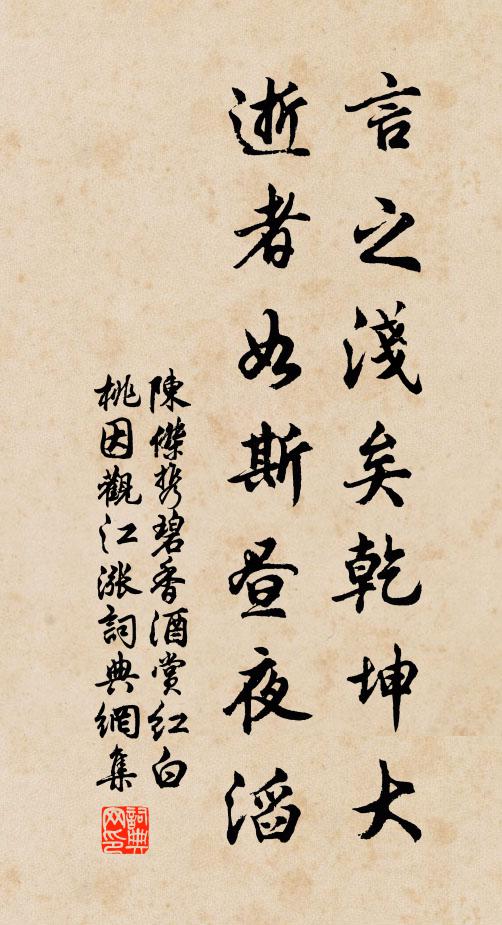 言之淺矣乾坤大
逝者如斯晝夜滔
陳傑携碧香酒賞紅白
桃因觀江漲詞典網集
詞典网印